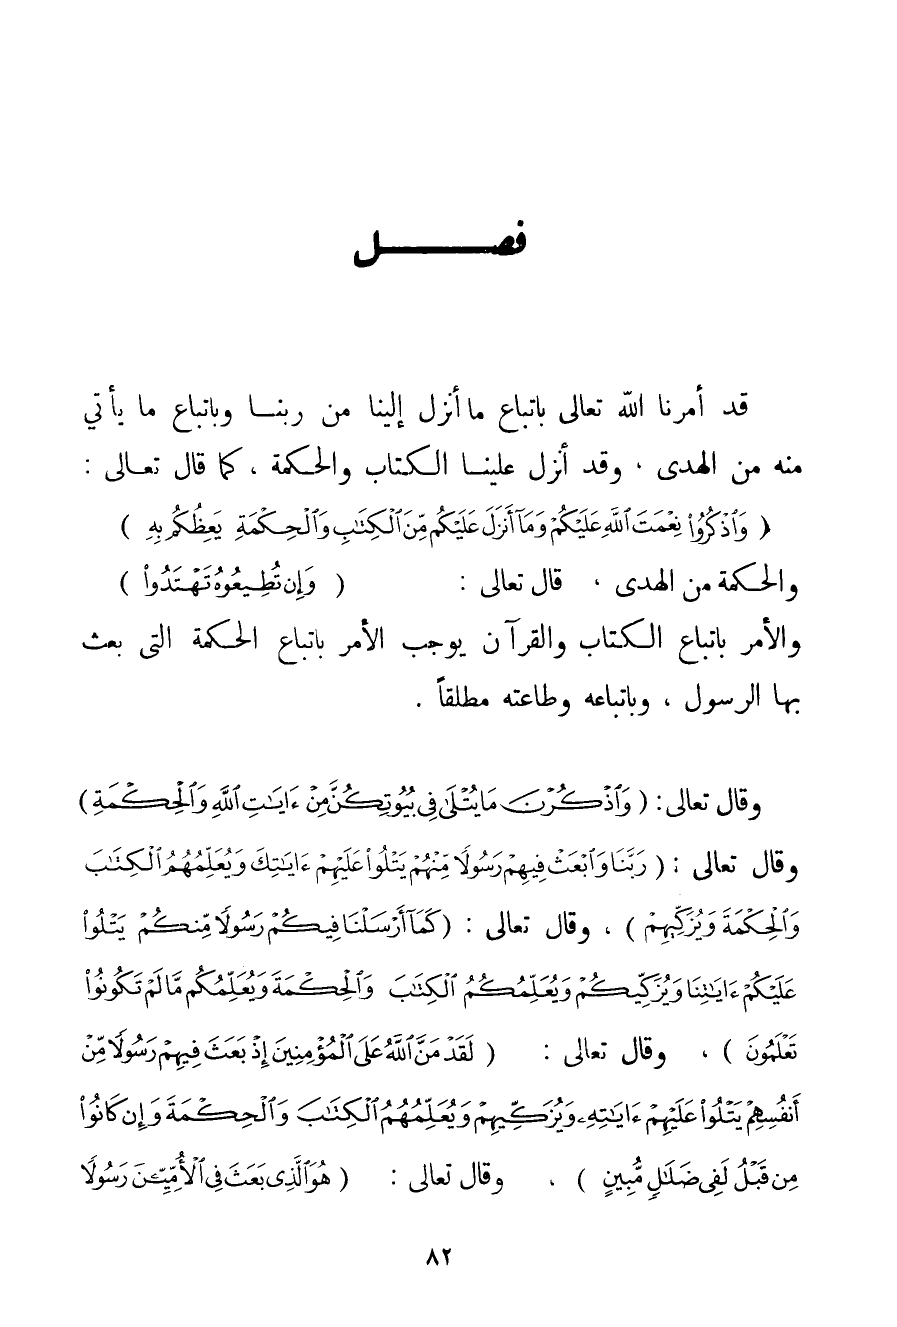 فصـــــــل
قد أمرنا الله تعالى باتباع ما أنزل إلينا من ربنـا وباتباع ما يأتي
منه من الهدى ، وقد أنزل علينـا الكتاب والحكمة ، كما قال تعـالى :
( وَٱذْكُرُوا۟ نِعْمَتَ ٱللَّهِ عَلَيْكُمْ وَمَآ أَنزَلَ عَلَيْكُم مِّنَ ٱلْكِتَٰبِ وَٱلْحِكْمَةِ يَعِظُكُم بِهِ )
والحكمة من الهدى ، قال تعالى : ( وَإِن تُطِيعُوهُ تَهْتَدُوا۟ )
والأمر باتباع الكتاب والقرآن يوجب الأمر باتباع الحكمة التى بعث
بها الرسول ، وباتباعه وطاعته مطلقاً .
وقال تعالى : ( وَٱذْكُرْنَ مَا يُتْلَىٰ فِى بُيُوتِكُنَّ مِنْ ءَايَٰتِ ٱللَّهِ وَٱلْحِكْمَةِ )
وقال تعالى : ( رَبَّنَا وَٱبْعَثْ فِيهِمْ رَسُولًا مِّنْهُمْ يَتْلُوا۟ عَلَيْهِمْ ءَايَٰتِكَ وَيُعَلِّمُهُمُ ٱلْكِتَٰبَ
وَٱلْحِكْمَةَ وَيُزَكِّيهِمْ ) ، وقال تعالى : ( كَمَآ أَرْسَلْنَا فِيكُمْ رَسُولًا مِّنكُمْ يَتْلُوا۟
عَلَيْكُمْ ءَايَٰتِنَا وَيُزَكِّيكُمْ وَيُعَلِّمُكُمُ ٱلْكِتَٰبَ وَٱلْحِكْمَةَ وَيُعَلِّمُكُم مَّا لَمْ تَكُونُوا۟
تَعْلَمُونَ ) ، وقال تعالى : ( لَقَدْ مَنَّ ٱللَّهُ عَلَى ٱلْمُؤْمِنِينَ إِذْ بَعَثَ فِيهِمْ رَسُولًا مِّنْ
أَنفُسِهِمْ يَتْلُوا۟ عَلَيْهِمْ ءَايَٰتِهِۦ وَيُزَكِّيهِمْ وَيُعَلِّمُهُمُ ٱلْكِتَٰبَ وَٱلْحِكْمَةَ وَإِن كَانُوا۟
مِن قَبْلُ لَفِى ضَلَٰلٍ مُّبِينٍ ) ، وقال تعالى : ( هُوَ ٱلَّذِى بَعَثَ فِى ٱلْأُمِّيِّۦنَ رَسُولًا
٨٢